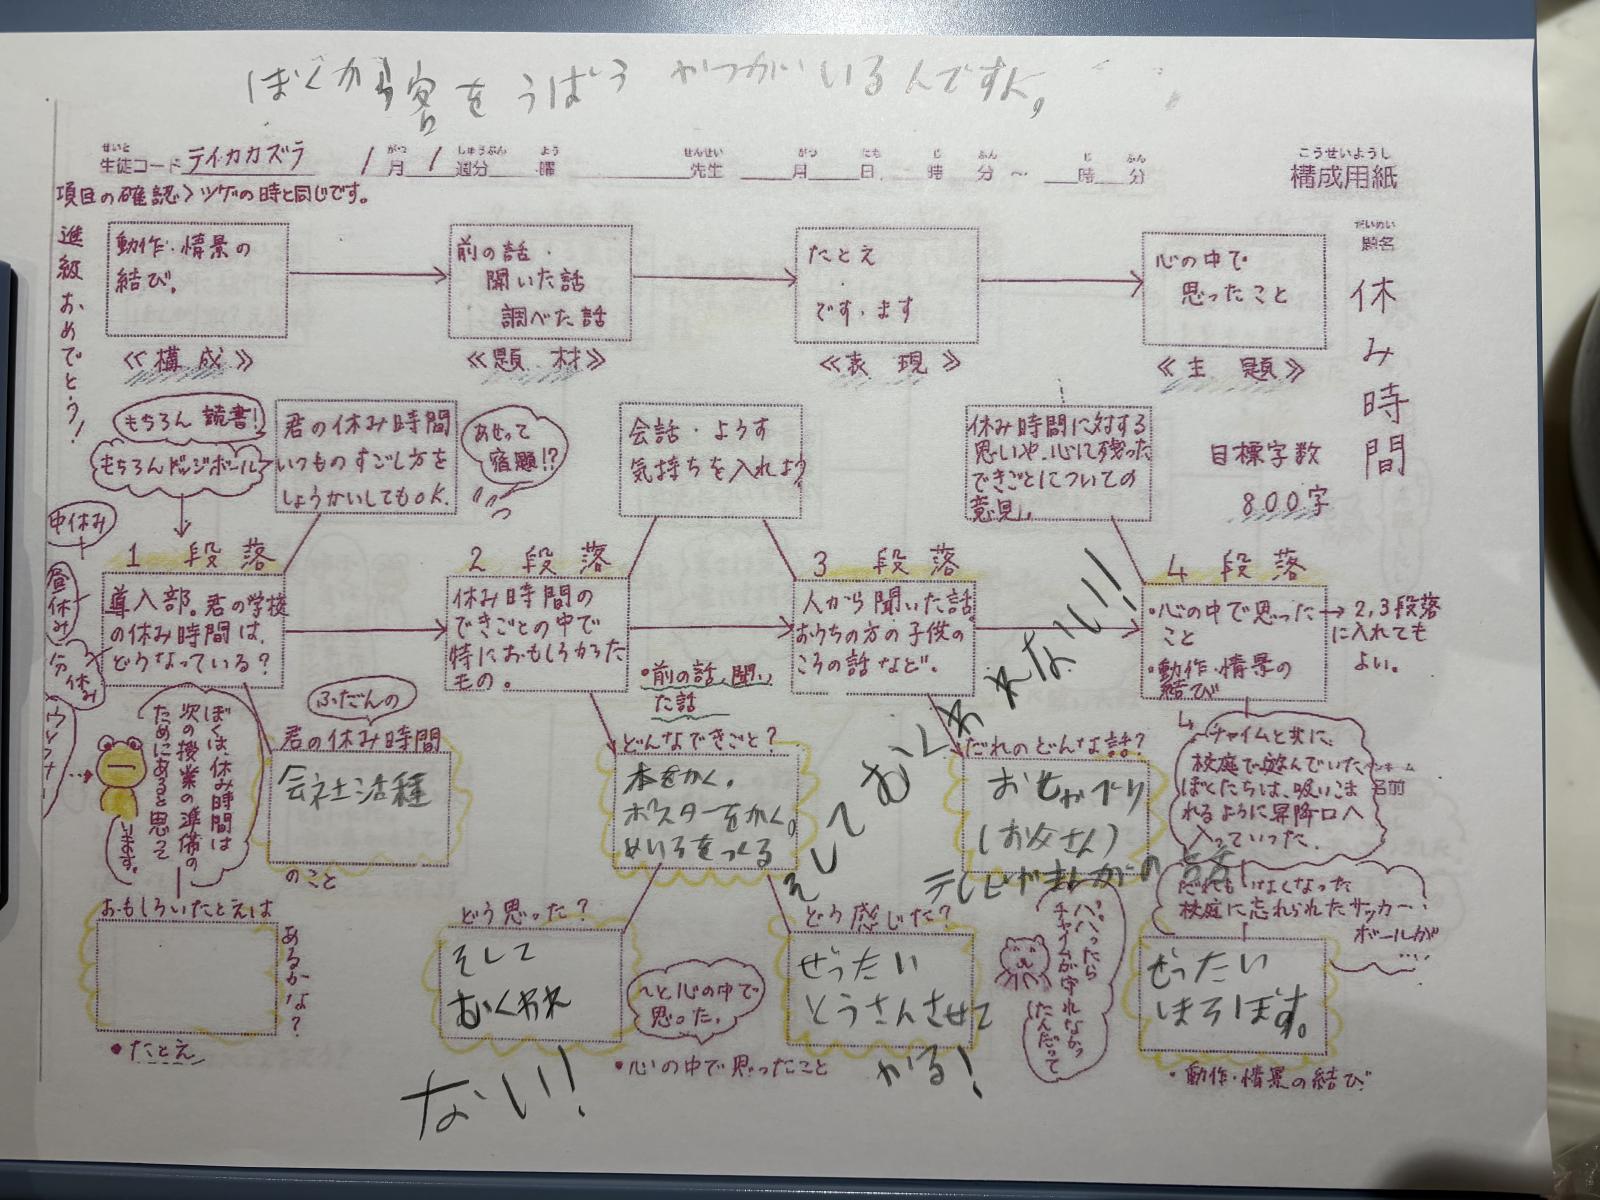 ぼくから客をうばうやつがいるんですよ。
せいと がつ しゅうぶん よう せんせい がつ にち じ ふん じ ふん
生徒コード テイカカズラ 1月1週分 曜 先生 月 日 時 分 〜 時 分
こうせいようし
構成用紙
項目の確認〉ツゲの時と同じです。
進級おめでとう!
だいめい
題名
休み時間
目標字数
800字
動作・情景の
結び。
≪構成≫
前の話・
聞いた話
調べた話
≪題材≫
たとえ
・
です・ます
≪表現≫
心の中で
思ったこと
≪主題≫
もちろん読書!
もちろんドッジボール
君の休み時間
いつものすごし方を
しょうかいしてもOK.
あせって
宿題!?
会話・ようす
気持ちを入れよう
休み時間に対する
思いや、心に残った
できごとについての
意見。
中休み
昼休み
分休み
1段落
導入部。君の学校
の休み時間は、
どうなっている?
2段落
休み時間の
できごとの中で
特におもしろかった
もの。
3段落
人から聞いた話。
おうちの方の子供の
ころの話など。
4段落
・心の中で思った
こと
・動作・情景の
結び
→2,3段落
に入れても
よい。
・前の話、聞い
た話
ぼくは、休み時間は
次の授業の準備の
ためにあると思って
います。
ふだんの
君の休み時間
会社活種
のこと
どんなできごと?
本をかく。
ポスターをかく。
めいろをつくる
そしてむくわれない!!
だれのどんな話?
おもちゃづくり
(お父さん)
テレビやまんがの
チャイムと共に、
校庭で遊んでいた
ぼくたちは、吸いこま
れるように昇降口へ
入っていった。
名前
だれもいなくなった
校庭に忘れられたサッカー
ボールが
....
おもしろいたとえは
あるかな?
・たとえ
どう思った?
そして
むくわれ
ない!
〜と心の中で
思った。
・心の中で思ったこと
どう感じた?
ぜったい
とうさんさせて
やる!
ハハハったら
チャイムが守れなかっ
たんだって
ぜったい
ほろぼす。
・動作・情景の結び